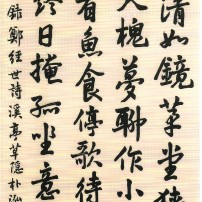 清如鏡草堂狹
大槐夢聊作小
有魚食停歌待
終日掩孤坐意
錄鄭經世詩溪亭草隱朴泓